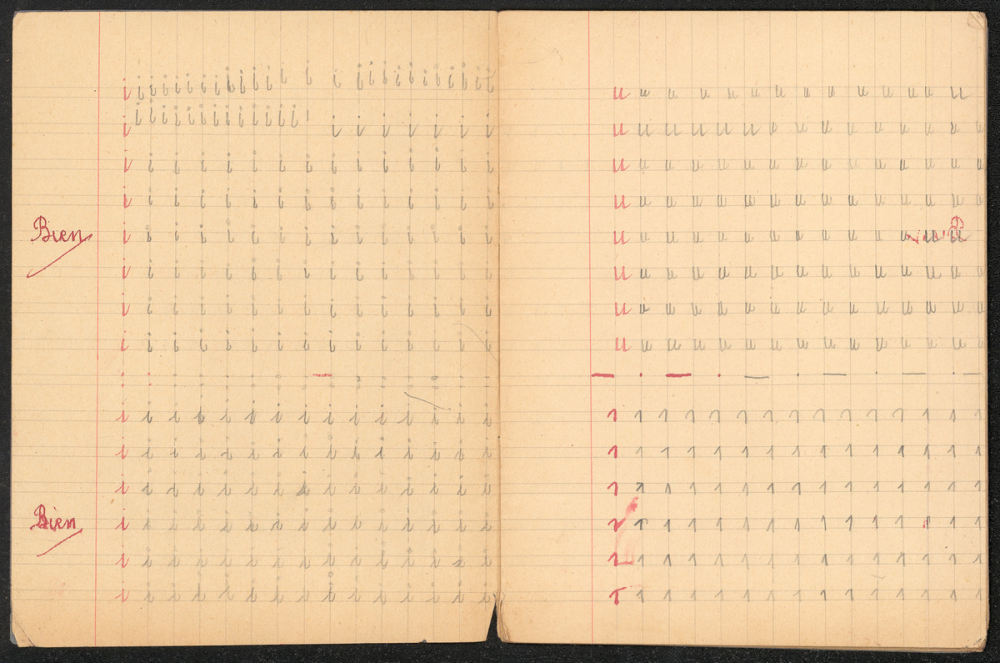 i i i i i i i i i i i i i i i i i i i i i i i i i
i i i i i i i i i i i i i i i i i i i i i
i i i i i i i i i i i i i i i
i i i i i i i i i i i i i i i
Bien i i i i i i i i i i i i i i i
i i i i i i i i i i i i i i i
i i i i i i i i i i i i i i i
i i i i i i i i i i i i i i i
i i i i i i i i i i i i i i i
i i i i i i i i i i i i i i i
i i i i i i i i i i i i i i i
Bien i i i i i i i i i i i i i i i
i i i i i i i i i i i i i i i
i i i i i i i i i i i i i i i
u u u u u u u u u u u u u u
u u u u u u u u u u u u u u u
u u u u u u u u u u u u u u u
u u u u u u u u u u u u u u u
u u u u u u u u u u u u u u
u u u u u u u u u u u u u u u
u u u u u u u u u u u u u u u
u u u u u u u u u u u u u u u
1 1 1 1 1 1 1 1 1 1 1 1 1 1 1
1 1 1 1 1 1 1 1 1 1 1 1 1 1 1
1 1 1 1 1 1 1 1 1 1 1 1 1 1 1
1 1 1 1 1 1 1 1 1 1 1 1 1 1 1
1 1 1 1 1 1 1 1 1 1 1 1 1 1 1
1 1 1 1 1 1 1 1 1 1 1 1 1 1 1